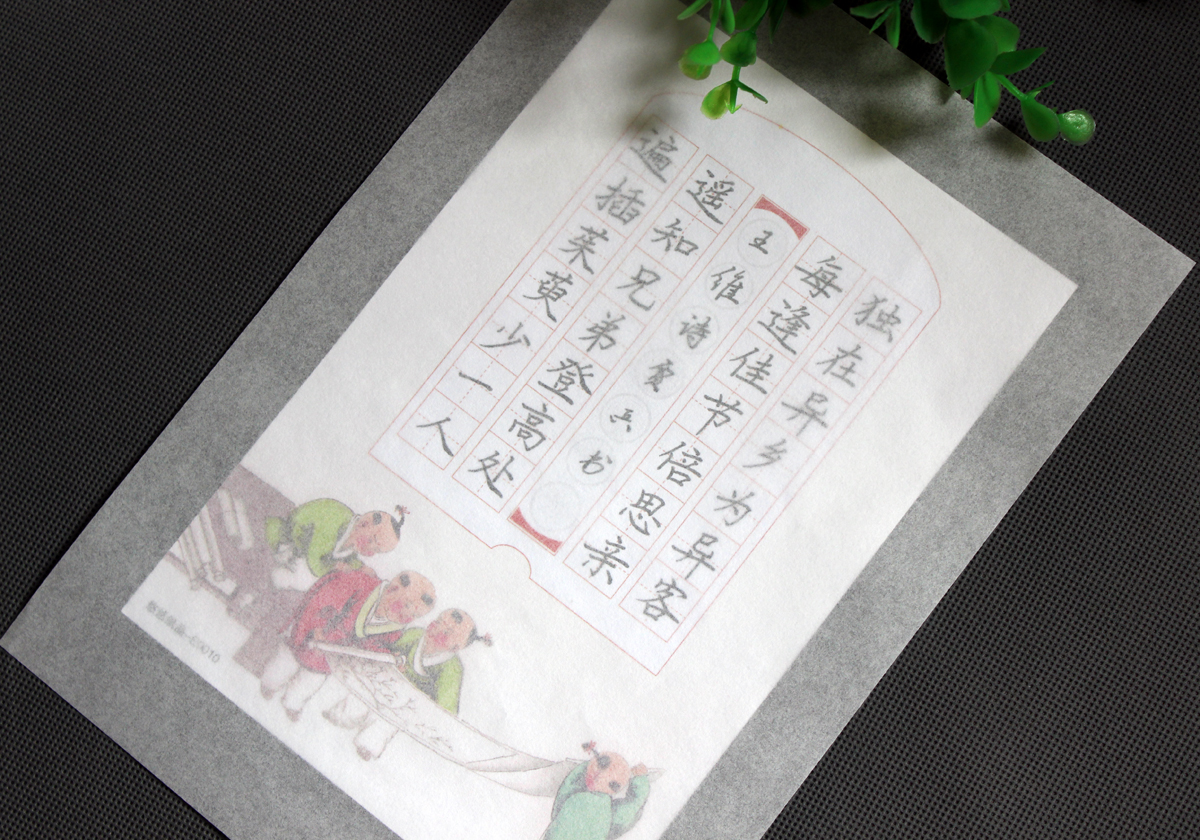 独在异乡为异客
每逢佳节倍思亲
王维诗贾云书
遥知兄弟登高处
遍插茱萸少一人